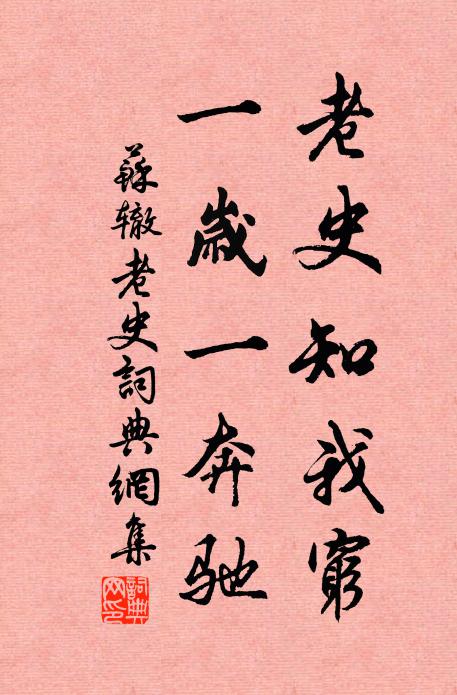 老史知我窮
一歲一奔馳
蘇辙老史詞典網集
詞典
网印